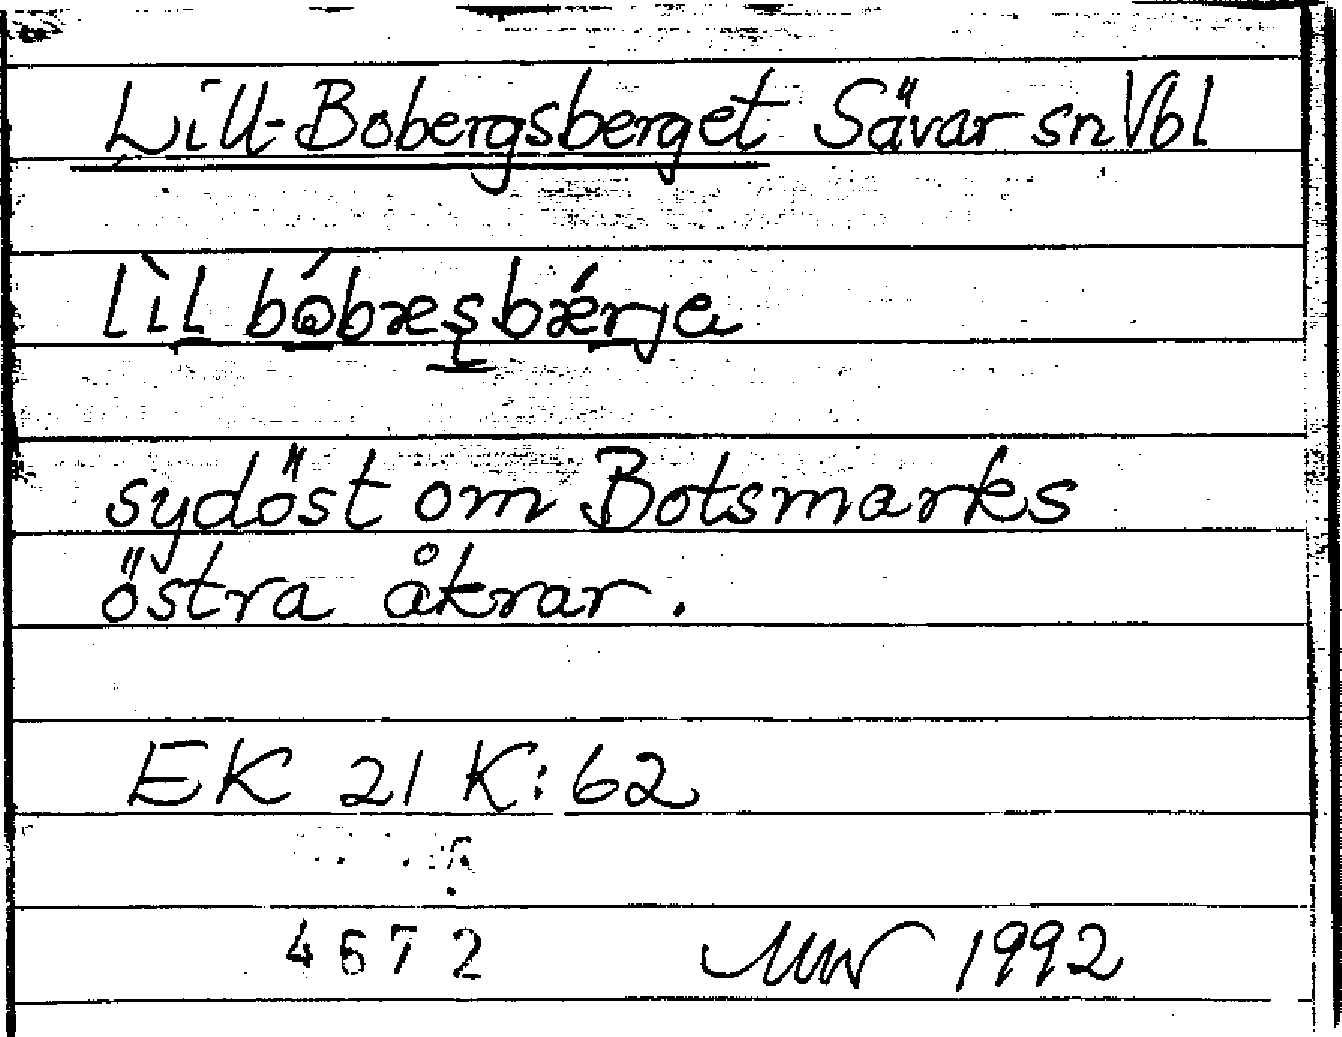 Lill-Bobergsberget Sävar sn Vbl
lìl bóbræsbǽrje
sydöst om Botsmarks
östra åkrar.
EK 21 K:62
4672 1992